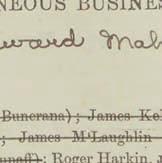 NEOUS BUSINES
ward Mab
Buncrana); James Kel
; James M'Laughlin
unaff); Roger Harkin, J